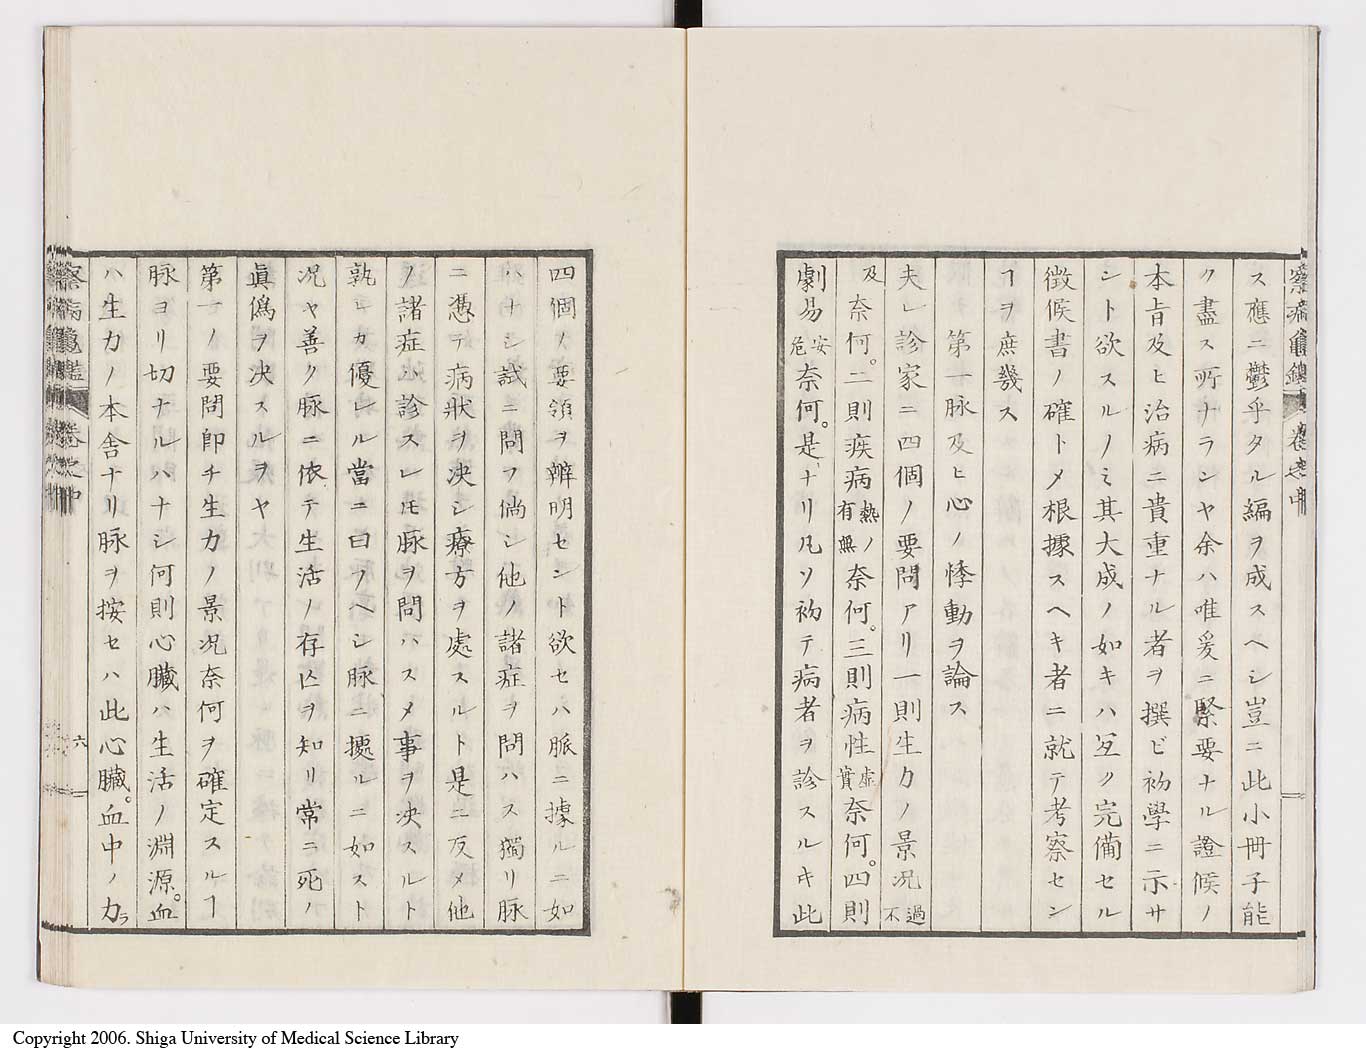 ス應ニ鬱乎タル編ヲ成スヘシ豈ニ此小冊子能
ク盡ス所ナランヤ余ハ唯爰ニ緊要ナル證候ノ
本旨及ヒ治病ニ貴重ナル者ヲ撰ビ初學ニ示サ
シト欲スルノミ其大成ノ如キハ互ク完備セル
徴候書ノ確トメ根據スヘキ者ニ就テ考察セン
ヿヲ庶幾ス
第一脉及ヒ心ノ悸動ヲ論ス
夫レ診家ニ四個ノ要問アリ一則生力ノ景况過不
及奈何。二則疾病熱ノ有無奈何。三則病性虚實奈何。四則
劇易安危奈何。是ナリ凡ソ初テ病者ヲ診スルキ此
四個ノ要領ヲ辨明セント欲セハ脈ニ據ルニ如
ハナシ試ニ問フ倘シ他ノ諸症ヲ問ハス獨リ脉
ニ憑テ病狀ヲ决シ療方ヲ處スルト是ニ反メ他
ノ諸症ハ診スレ𪜈脉ヲ問ハスメ事ヲ决スルト
孰レカ優レル當ニ曰フヘシ脉ニ據ルニ如スト
况ヤ善ク脉ニ依テ生活ノ存亾ヲ知リ常ニ死ノ
眞僞ヲ决スルヲヤ
第一ノ要問即チ生力ノ景况奈何ヲ確定スルヿ
脉ヨリ切ナルハナシ何則心臓ハ生活ノ淵源。血
ハ生力ノ本舎ナリ脉ヲ按セハ此心臓。血中ノ力ヲ
察病龜鑑 卷之中
六
Copyright 2006. Shiga University of Medical Science Library